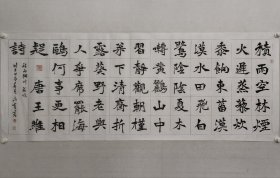 積雨空林煙
火遲蒸藜炊
黍餉東菑漠
漠水田飛白
鷺陰陰夏木
囀黃鸝山中
習靜觀朝槿
松下清齋折
露葵野老與
人爭席罷海
鷗何事更相
疑唐王維
詩